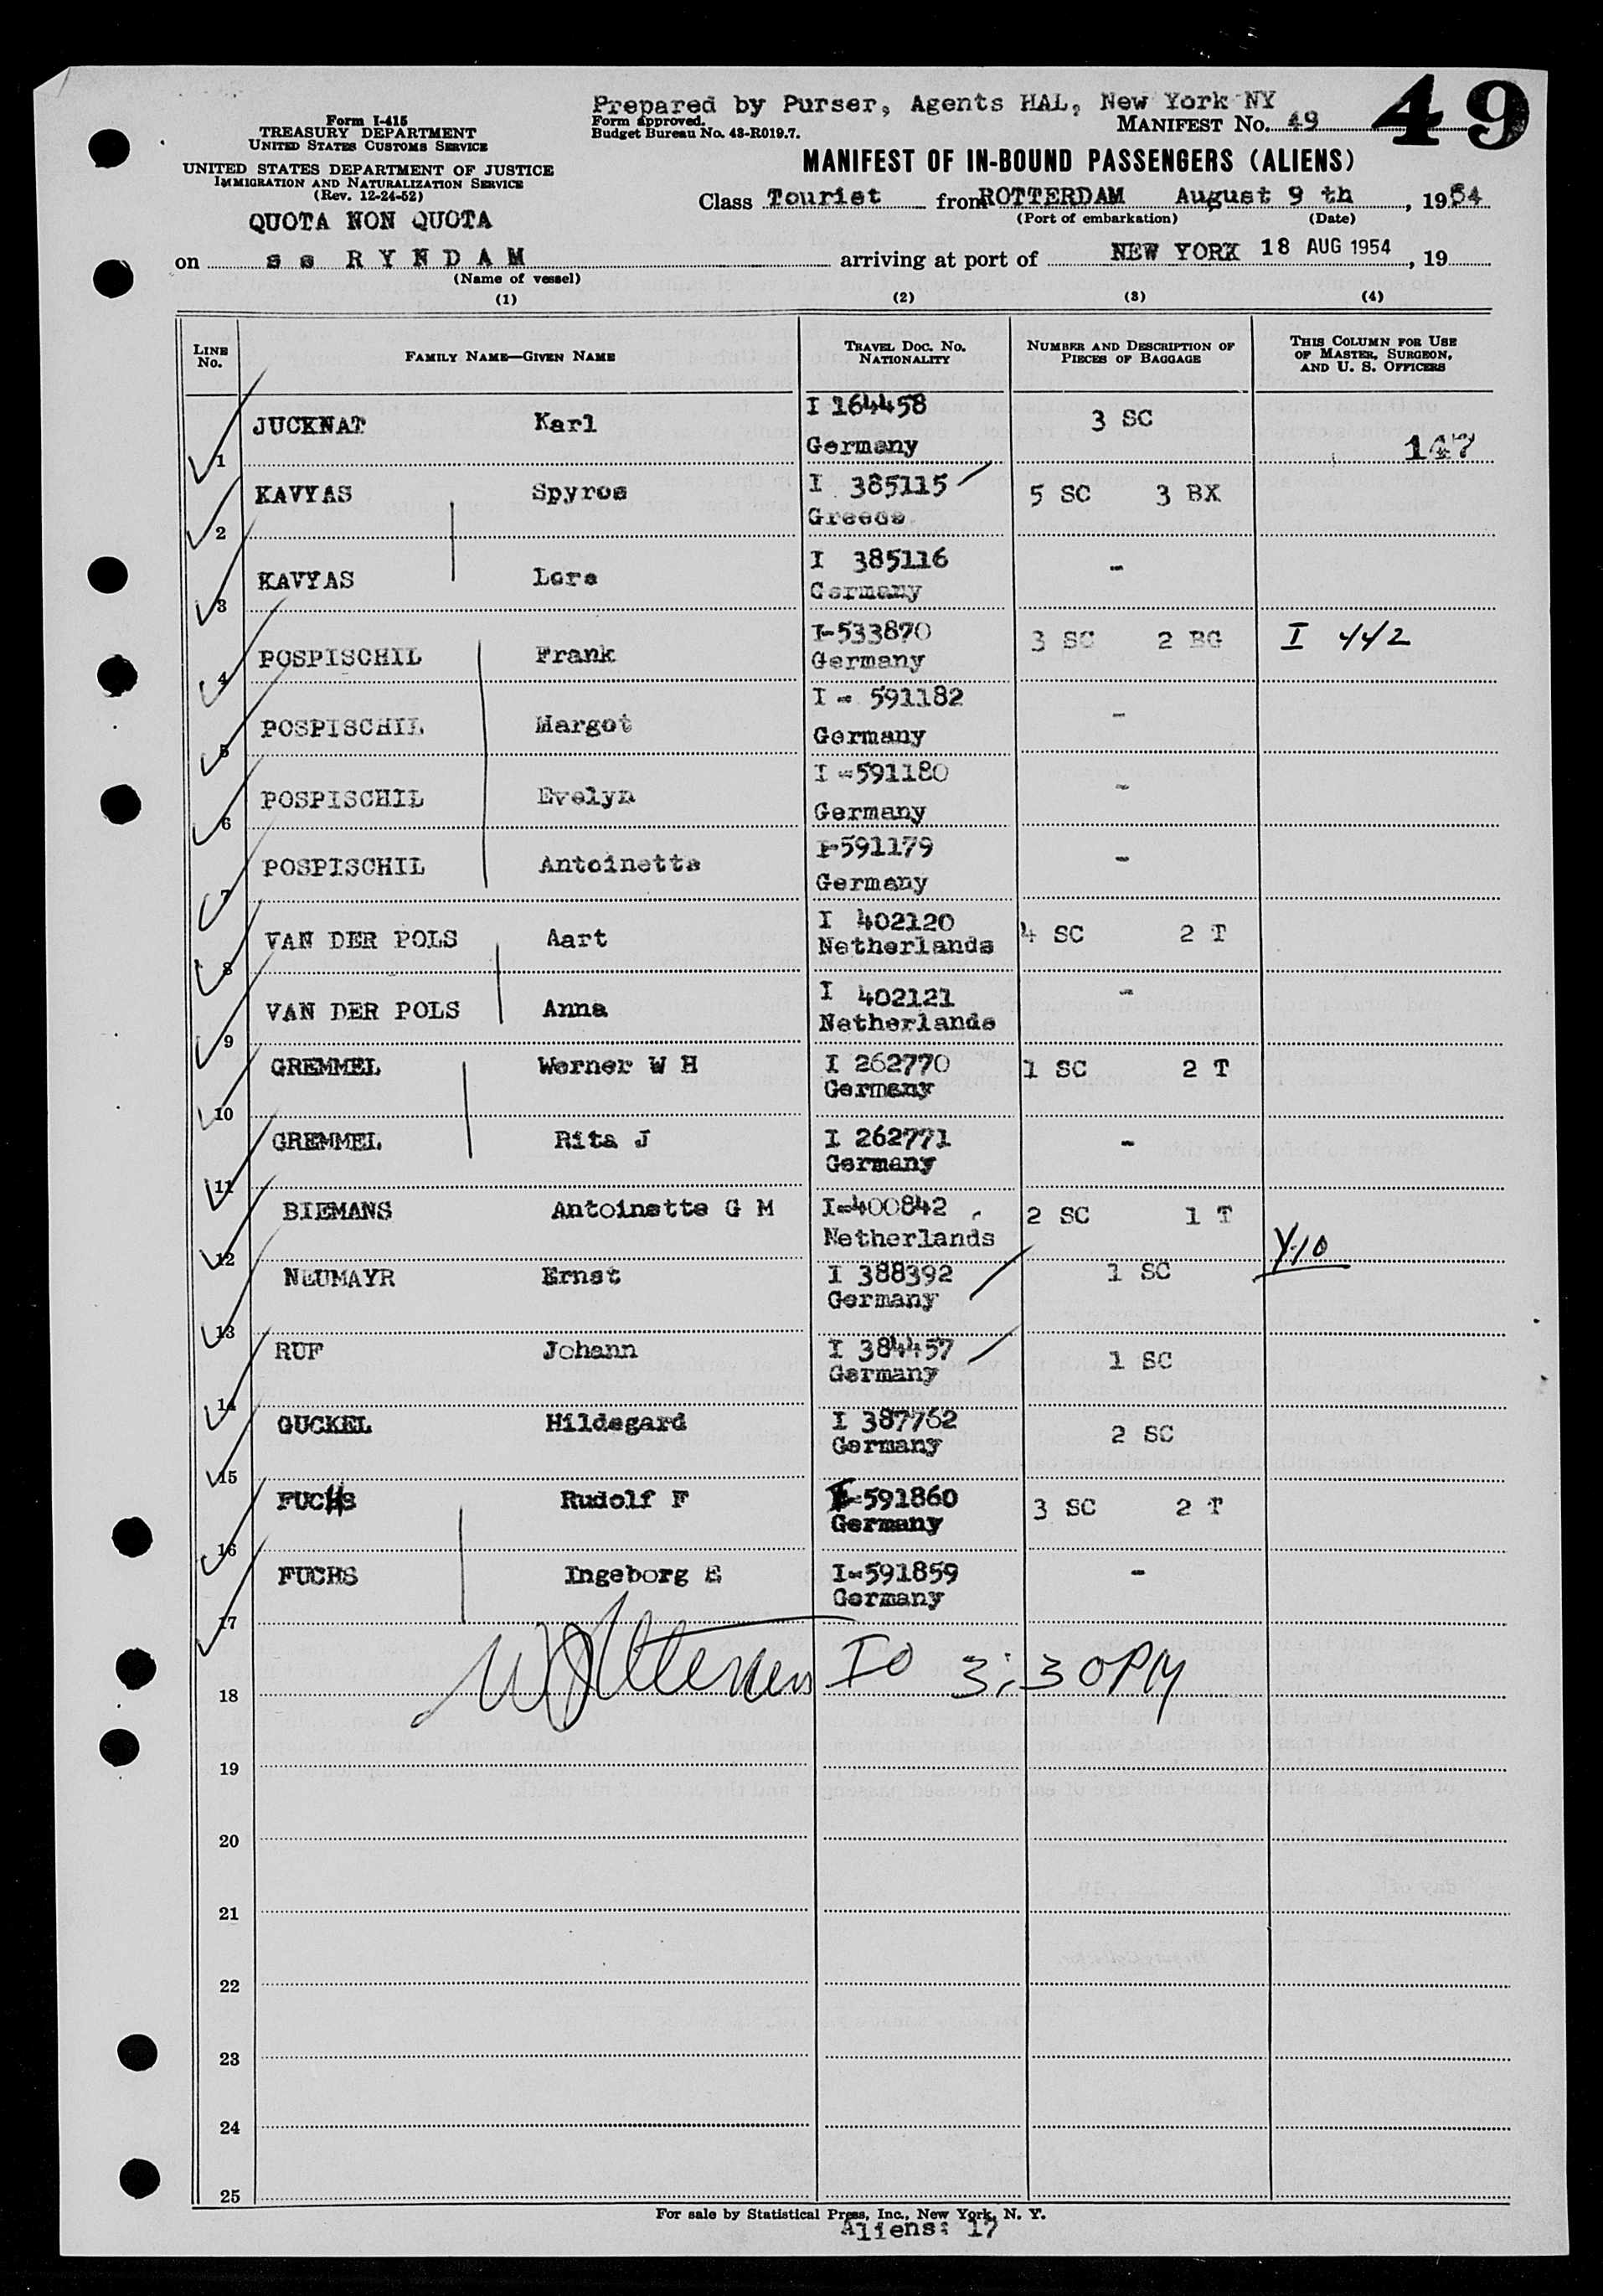 Prepared by Purser, Agents HAL, New York NY
Form I-415
TREASURY DEPARTMENT
UNITED STATES CUSTOMS SERVICE
Form approved.
Budget Bureau No. 43-R019.7.
MANIFEST No. 49
49
UNITED STATES DEPARTMENT OF JUSTICE
IMMIGRATION AND NATURALIZATION SERVICE
(Rev. 12-24-52)
MANIFEST OF IN-BOUND PASSENGERS (ALIENS)
QUOTA NON QUOTA
Class Tourist from ROTTERDAM August 9 th, 1954
(Port of embarkation) (Date)
on s s RYNDAM arriving at port of NEW YORK 18 AUG 1954, 19
(Name of vessel)
(1) (2) (3) (4)
LINE No. FAMILY NAME—GIVEN NAME TRAVEL DOC. No. NATIONALITY NUMBER AND DESCRIPTION OF PIECES OF BAGGAGE THIS COLUMN FOR USE OF MASTER, SURGEON, AND U. S. OFFICERS
1 JUCKNAT Karl I 164458 3 SC
Germany 147
2 KAVYAS Spyros I 385115 5 SC 3 BX
Greece
3 KAVYAS Lore I 385116 -
Germany
4 POSPISCHIL Frank I-533870 3 SC 2 BG I 442
Germany
5 POSPISCHIL Margot I - 591182 -
Germany
6 POSPISCHIL Evelyn I -591180 -
Germany
7 POSPISCHIL Antoinette I-591179 -
Germany
8 VAN DER POLS Aart I 402120 4 SC 2 T
Netherlands
9 VAN DER POLS Anna I 402121 -
Netherlands
10 GREMMEL Werner W H I 262770 1 SC 2 T
Germany
11 GREMMEL Rita J I 262771 -
Germany
12 BIEMANS Antoinette G M I-400842 2 SC 1 T
Netherlands Y-10
13 NEUMAYR Ernst I 388392 1 SC
Germany
14 RUF Johann I 384457 1 SC
Germany
15 GUCKEL Hildegard I 387762 2 SC
Germany
16 FUCHS Rudolf F I-591860 3 SC 2 T
Germany
17 FUCHS Ingeborg E I-591859 -
Germany
18 IO 3:30PM
19
20
21
22
23
24
25
For sale by Statistical Press, Inc., New York, N. Y.
Aliens: 17